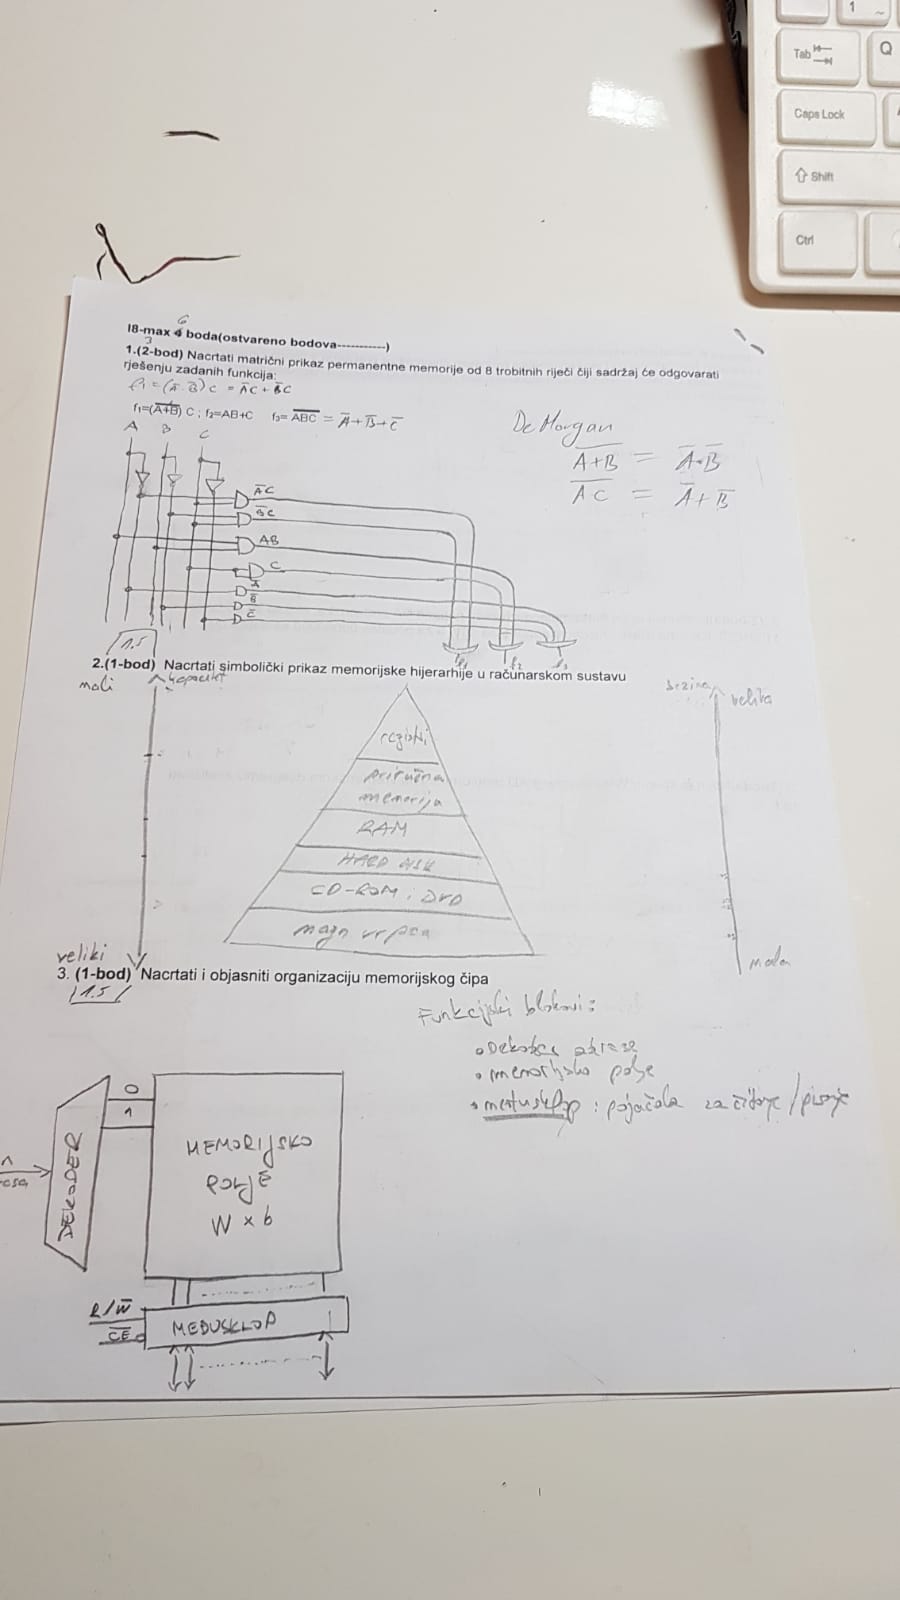 1
~
Tab
Q
Caps Lock
Shift
Ctrl
6
I8-max 4 boda(ostvareno bodova-----------)
3
1.(2-bod) Nacrtati matrični prikaz permanentne memorije od 8 trobitnih riječi čiji sadržaj će odgovarati
rješenju zadanih funkcija:
f₁ = (A̅·B̅)C = A̅C + B̅C
f₁=(A̅+̅B̅) C ; f₂=AB+C f₃= A̅B̅C̅ = A̅+B̅+C̅
De Morgan
A̅+̅B̅ = A̅·B̅
A̅C̅ = A̅+B̅
A B C
A̅C
B̅C
AB
C
A̅
B̅
C̅
f₁ f₂ f₃
1.5
2.(1-bod) Nacrtati simbolički prikaz memorijske hijerarhije u računarskom sustavu
mali kapacitet
brzina velika
registri
priručna
memorija
RAM
HARD DISK
CD-ROM i DVD
magn vrpca
veliki
mala
3. (1-bod) Nacrtati i objasniti organizaciju memorijskog čipa
1.5
Funkcijski blokovi:
• Dekoder adrese
• memorijsko polje
• međusklop : pojačala za čitanje/pisanje
0
1
DEKODER
MEMORIJSKO
POLJE
W x b
R/W̅
C̅E̅
MEDUSKLOP